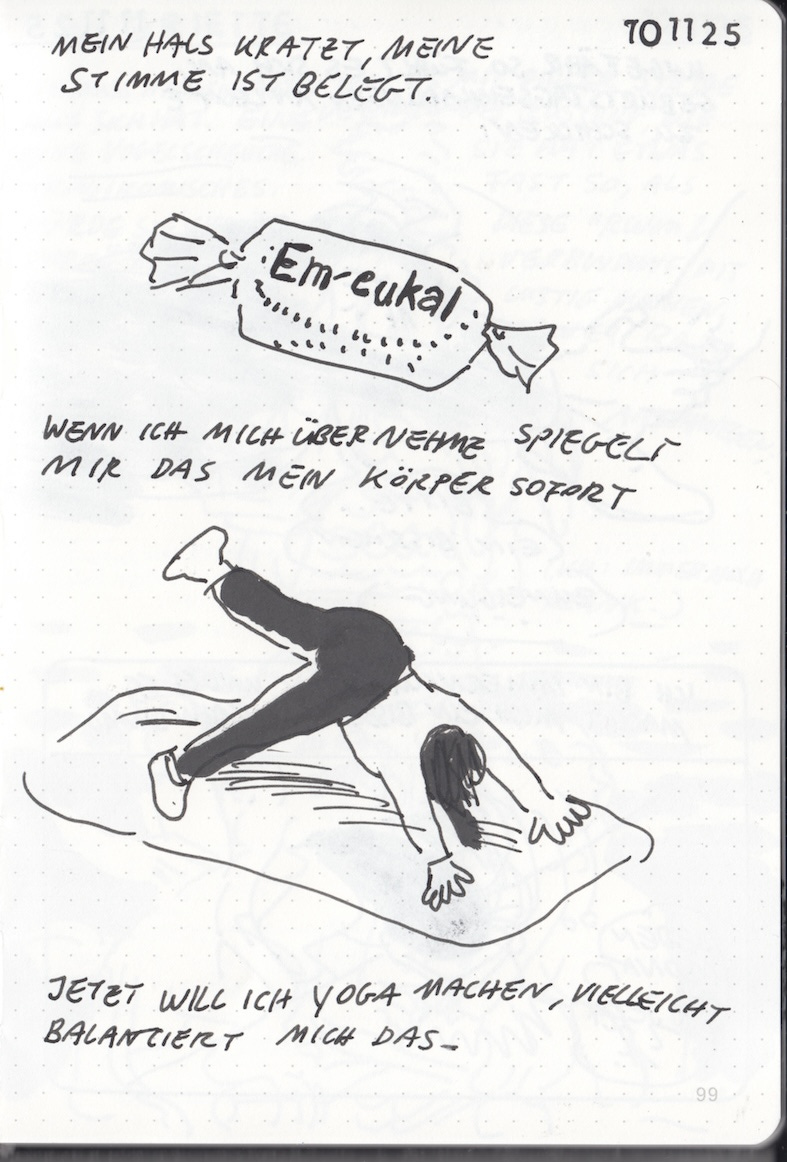 10 11 25
MEIN HALS KRATZT, MEINE
STIMME IST BELEGT.
Em-eukal
WENN ICH MICH ÜBERNEHME SPIEGELT
MIR DAS MEIN KÖRPER SOFORT
JETZT WILL ICH YOGA MACHEN, VIELLEICHT
BALANCIERT MICH DAS_
99